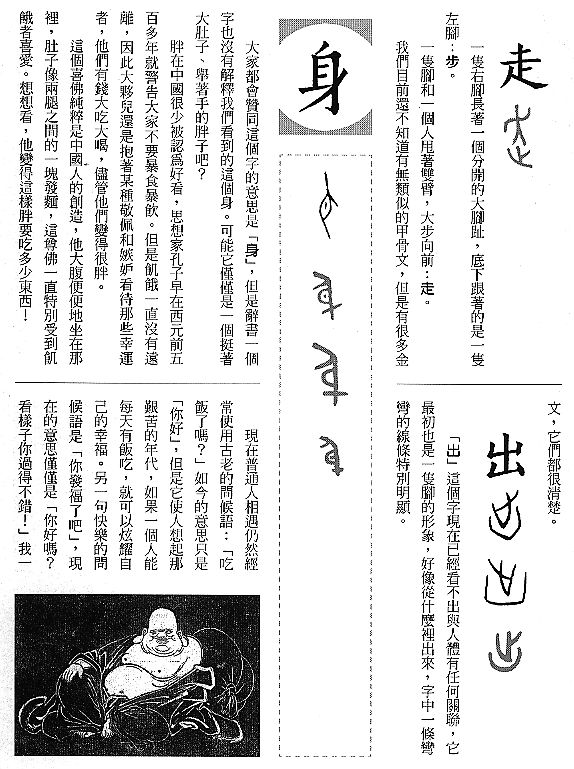 走
一隻右腳長著一個分開的大腳趾，底下跟著的是一隻
左腳：步。
一隻腳和一個人甩著雙臂，大步向前：走。
我們目前還不知道有無類似的甲骨文，但是有很多金
文，它們都很清楚。
出
「出」這個字現在已經看不出與人體有任何關聯，它
最初也是一隻腳的形象，好像從什麼裡出來，字中一條彎
彎的線條特別明顯。
身
大家都會贊同這個字的意思是「身」，但是辭書一個
字也沒有解釋我們看到的這個身。可能它僅僅是一個挺著
大肚子、舉著手的胖子吧？
胖在中國很少被認為好看，思想家孔子早在西元前五
百多年就警告大家不要暴食暴飲。但是飢餓一直沒有遠
離，因此大夥兒還是抱著某種敬佩和嫉妒看待那些幸運
者，他們有錢大吃大喝，儘管他們變得很胖。
這個喜佛純粹是中國人的創造，他大腹便便地坐在那
裡，肚子像兩腿之間的一塊發麵，這尊佛一直特別受到飢
餓者喜愛。想想看，他變得這樣胖要吃多少東西！
現在普通人相遇仍然經
常使用古老的問候語：「吃
飯了嗎？」如今的意思只是
「你好」，但是它使人想起那
艱苦的年代，如果一個人能
每天有飯吃，就可以炫耀自
己的幸福。另一句快樂的問
候語是「你發福了吧」，現
在的意思僅僅是「你好嗎？
看樣子你過得不錯！」我一